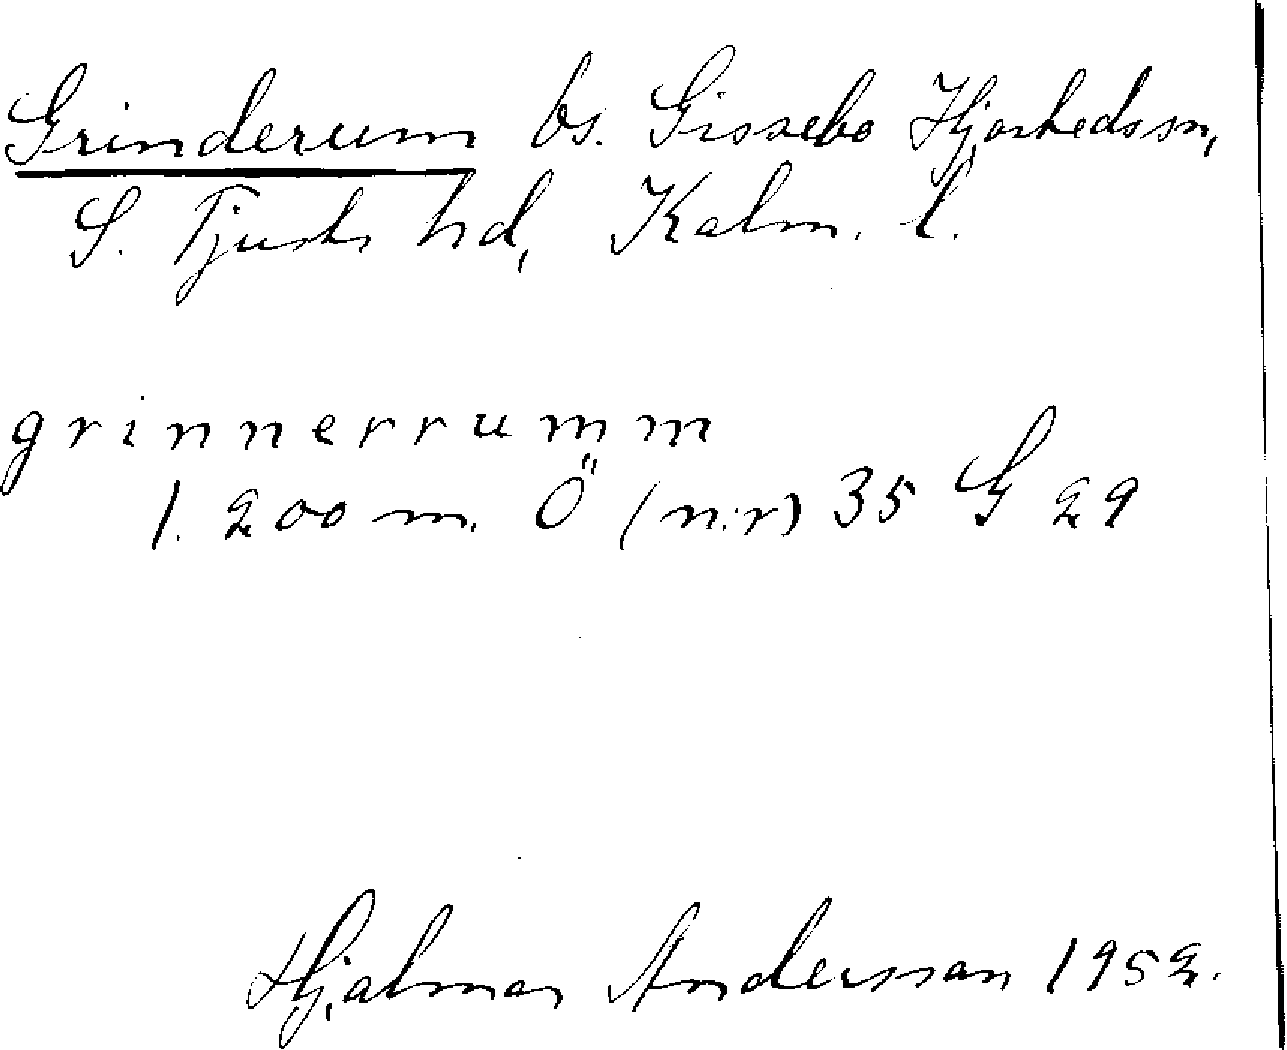 Grinderum bs. Gissebo Hjortedssn,
S. Tjusts hd, Kalm. l.
grinnerrumm
1. 200 m. Ö (n:r) 35 G 29
Hjalmar Andersson 1952.